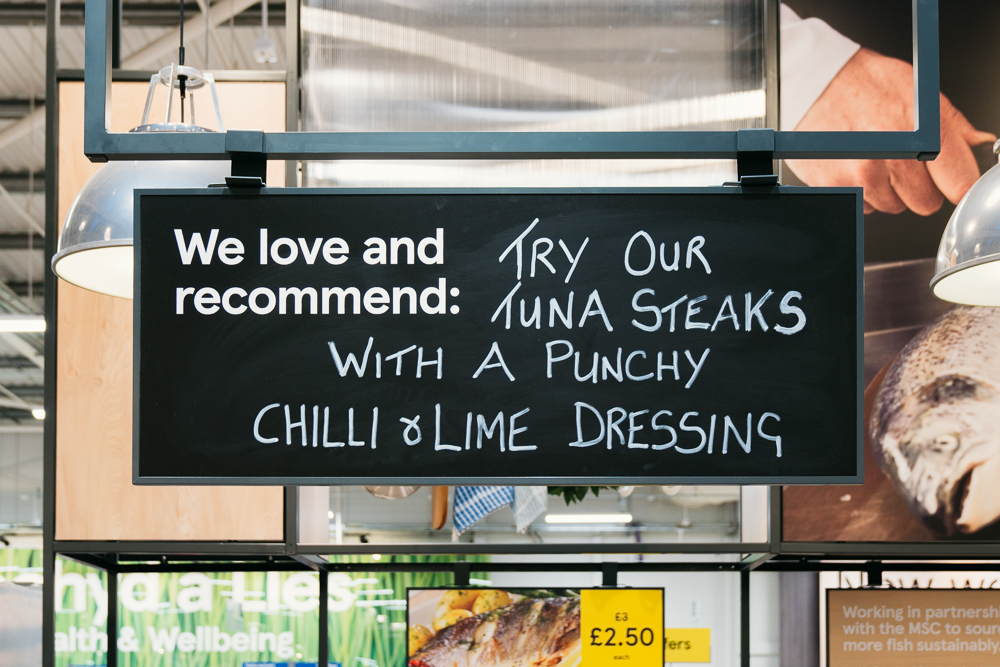 We love and
recommend:
TRY OUR
TUNA STEAKS
WITH A PUNCHY
CHILLI & LIME DRESSING
hyd a Lles
alth & Wellbeing
£3
£2.50
each
fers
Working in partnersh
with the MSC to sour
more fish sustainably